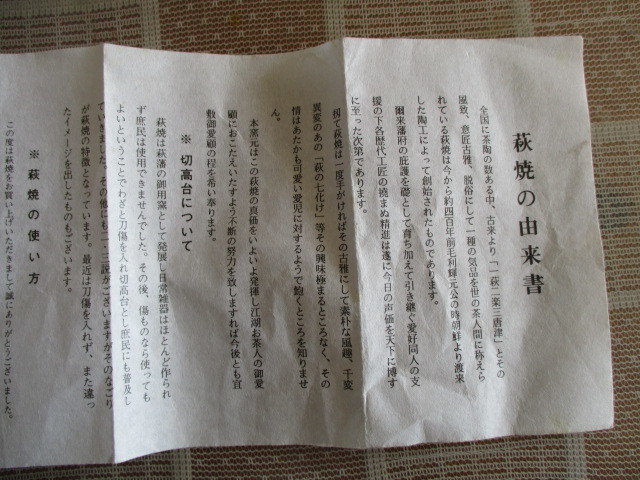 萩焼の由来書
全国に茶陶の数ある中、古来より「一萩二楽三唐津」とその
風致、意匠古雅、脱俗にして一種の気品を世の茶人間に称えら
れている萩焼は今から約四百年前毛利輝元公の時朝鮮より渡来
した陶工によって創始されたものであります。
爾来藩府の庇護を礎として育ち加えて引き継ぐ愛好同人の支
援の下各歴代工匠の撓まぬ精進は遂に今日の声価を天下に博す
に至った次第であります。
扨て萩焼は一度手がければその古雅にして素朴な風趣、千変
異変のあの「萩の七化け」等その興味極まるところなく、その
情はあたかも可愛い愛児に対するようで飽くところを知りませ
ん。
本窯元はこの萩焼の真価をいよいよ発揮し江湖お茶人の御愛
顧におこたえいたすよう不断の努力を致しますれば今後とも宜
敷御愛顧の程を希い奉ります。
※ 切高台について
萩焼は萩藩の御用窯として発展し日常雑器はほとんど作られ
ず庶民は使用できませんでした。その後、傷ものなら使っても
よいということでわざと刀傷を入れ切高台とし庶民にも普及し
ていきました。その他にも一、二説がございますがそのなごり
が萩焼の特徴となっています。最近は刀傷を入れず、また違っ
たイメージを出したものもございます。
※ 萩焼の使い方
この度は萩焼をお買い上げいただきまして誠にありがとうございました。